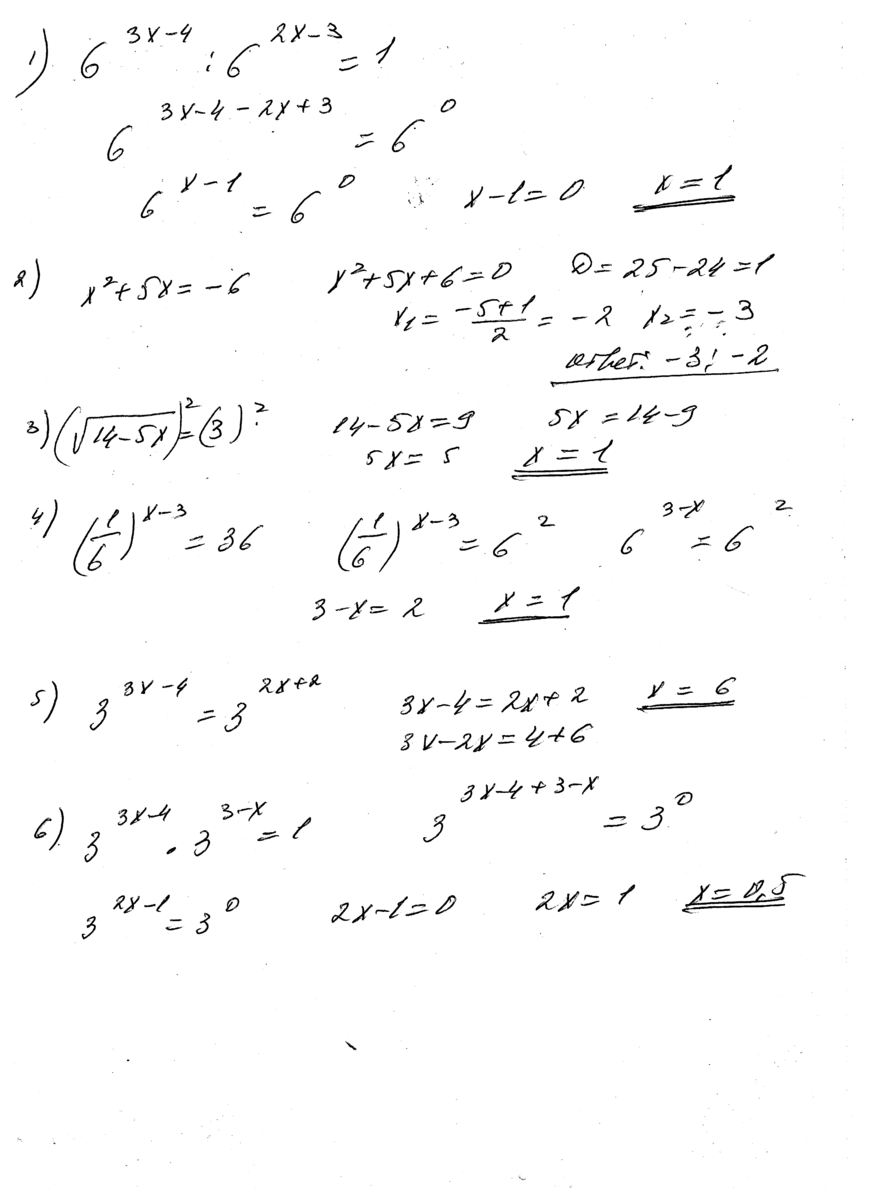 1) 6^(3x-4) : 6^(2x-3) = 1
6^(3x-4-2x+3) = 6^0
6^(x-1) = 6^0 x-1=0 x=1
2) x²+5x=-6 x²+5x+6=0 D=25-24=1
x₁=(-5+1)/2=-2 x₂=-3
Ответ: -3; -2
3) (√(14-5x))²=(3)² 14-5x=9 5x=14-9
5x=5 x=1
4) (1/6)^(x-3)=36 (1/6)^(x-3)=6² 6^(3-x)=6²
3-x=2 x=1
5) 3^(3x-4)=3^(2x+2) 3x-4=2x+2 x=6
3x-2x=4+6
6) 3^(3x-4)·3^(3-x)=1 3^(3x-4+3-x)=3^0
3^(2x-1)=3^0 2x-1=0 2x=1 x=0,5